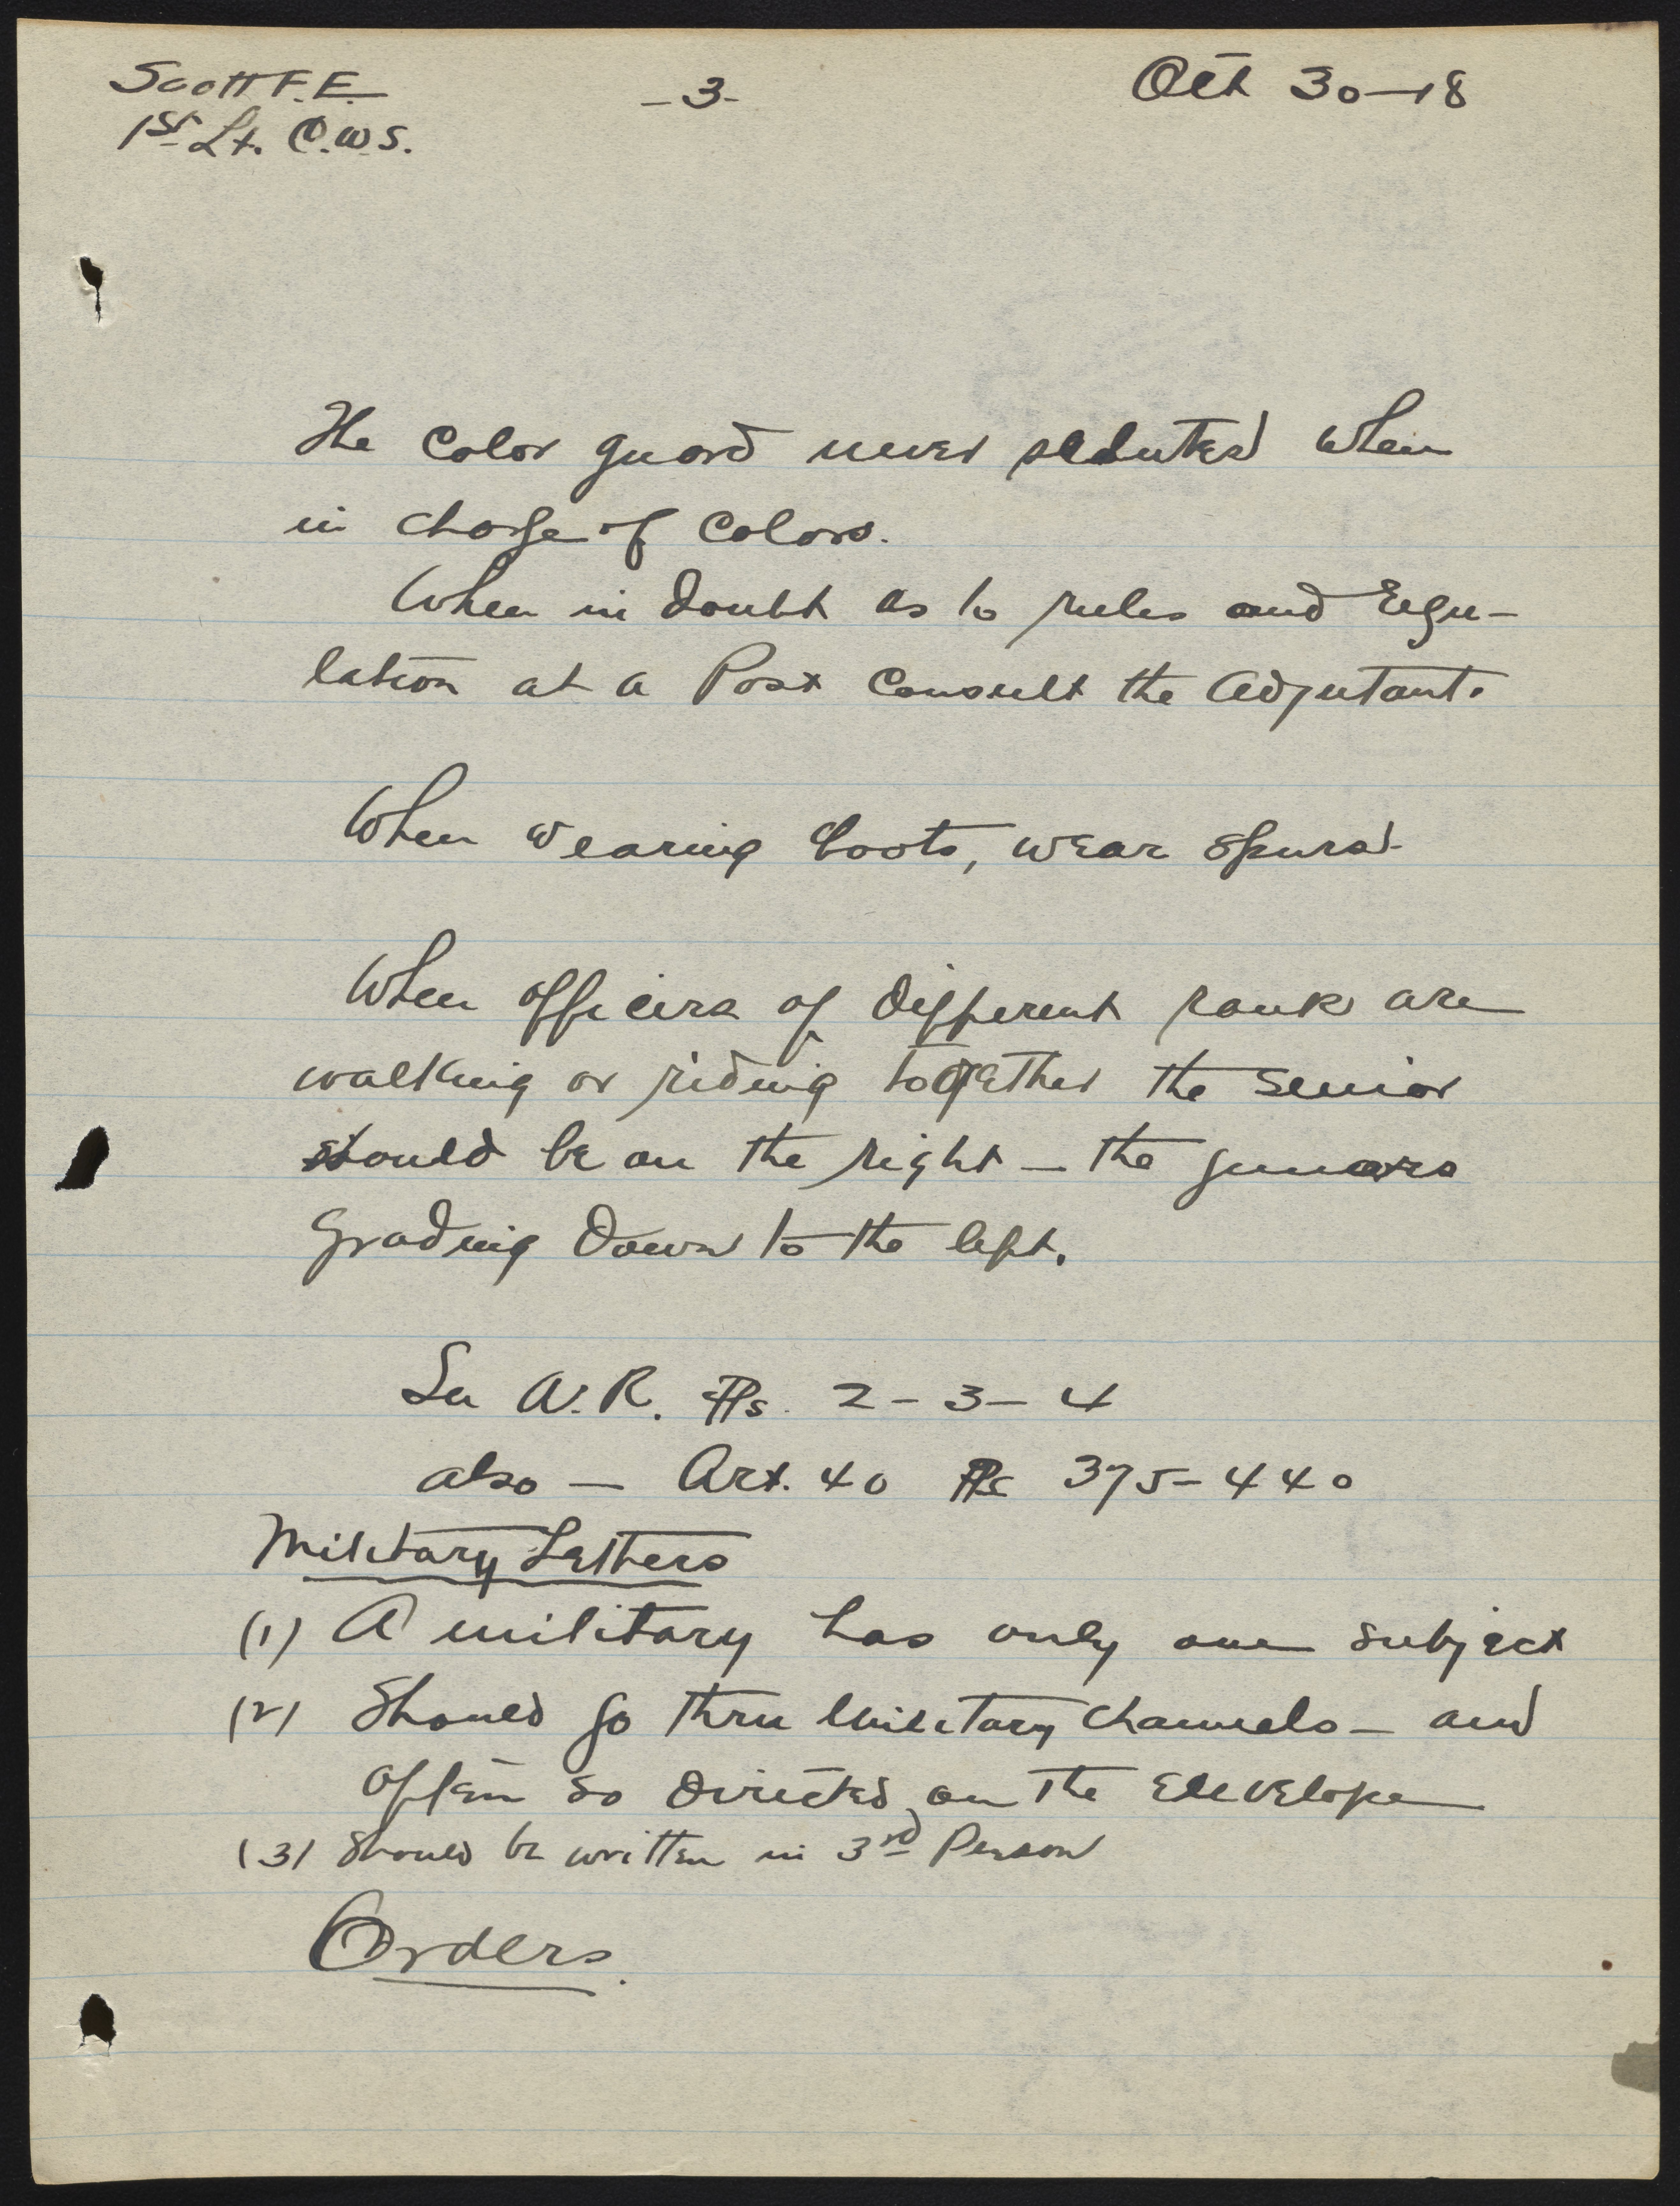 Scott F.E. -3- Oct 30-18
1st Lt. C.W.S.
The Color guard never saluted when
in charge of Colors.
When in doubt as to rules and regu-
lation at a Post Consult the Adjutant.
When wearing boots, wear spurs.
When officers of different rank are
walking or riding together the senior
should be on the right - the juniors
grading down to the left.
See A.R. Ps. 2-3-4
also - Art. 40 Ps 375-440
Military Letters
(1) A military has only one subject
(2) Should go thru Military Channels - and
often so directed on the Envelope
(3) Should be written in 3rd Person
Orders.